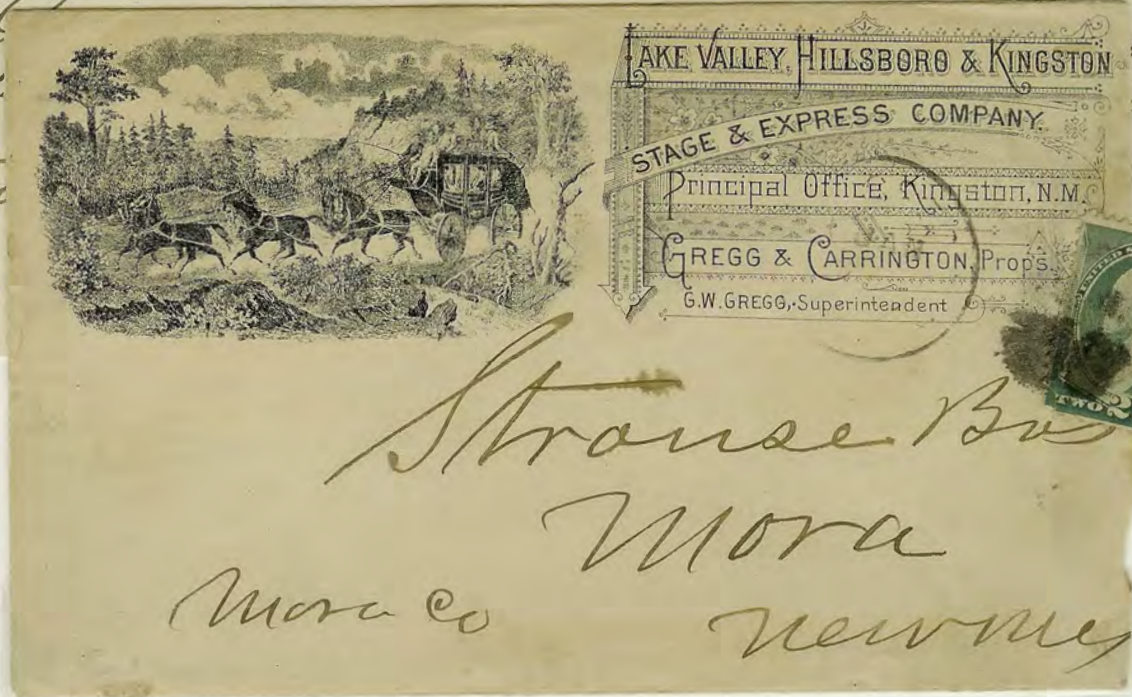 LAKE VALLEY, HILLSBORO & KINGSTON
STAGE & EXPRESS COMPANY.
Principal Office, Kingston, N.M.
GREGG & CARRINGTON, Prop's.
G.W. GREGG, Superintendent
UNITED
TWO 2
Strouse Bros
Mora
Mora Co
New Mex